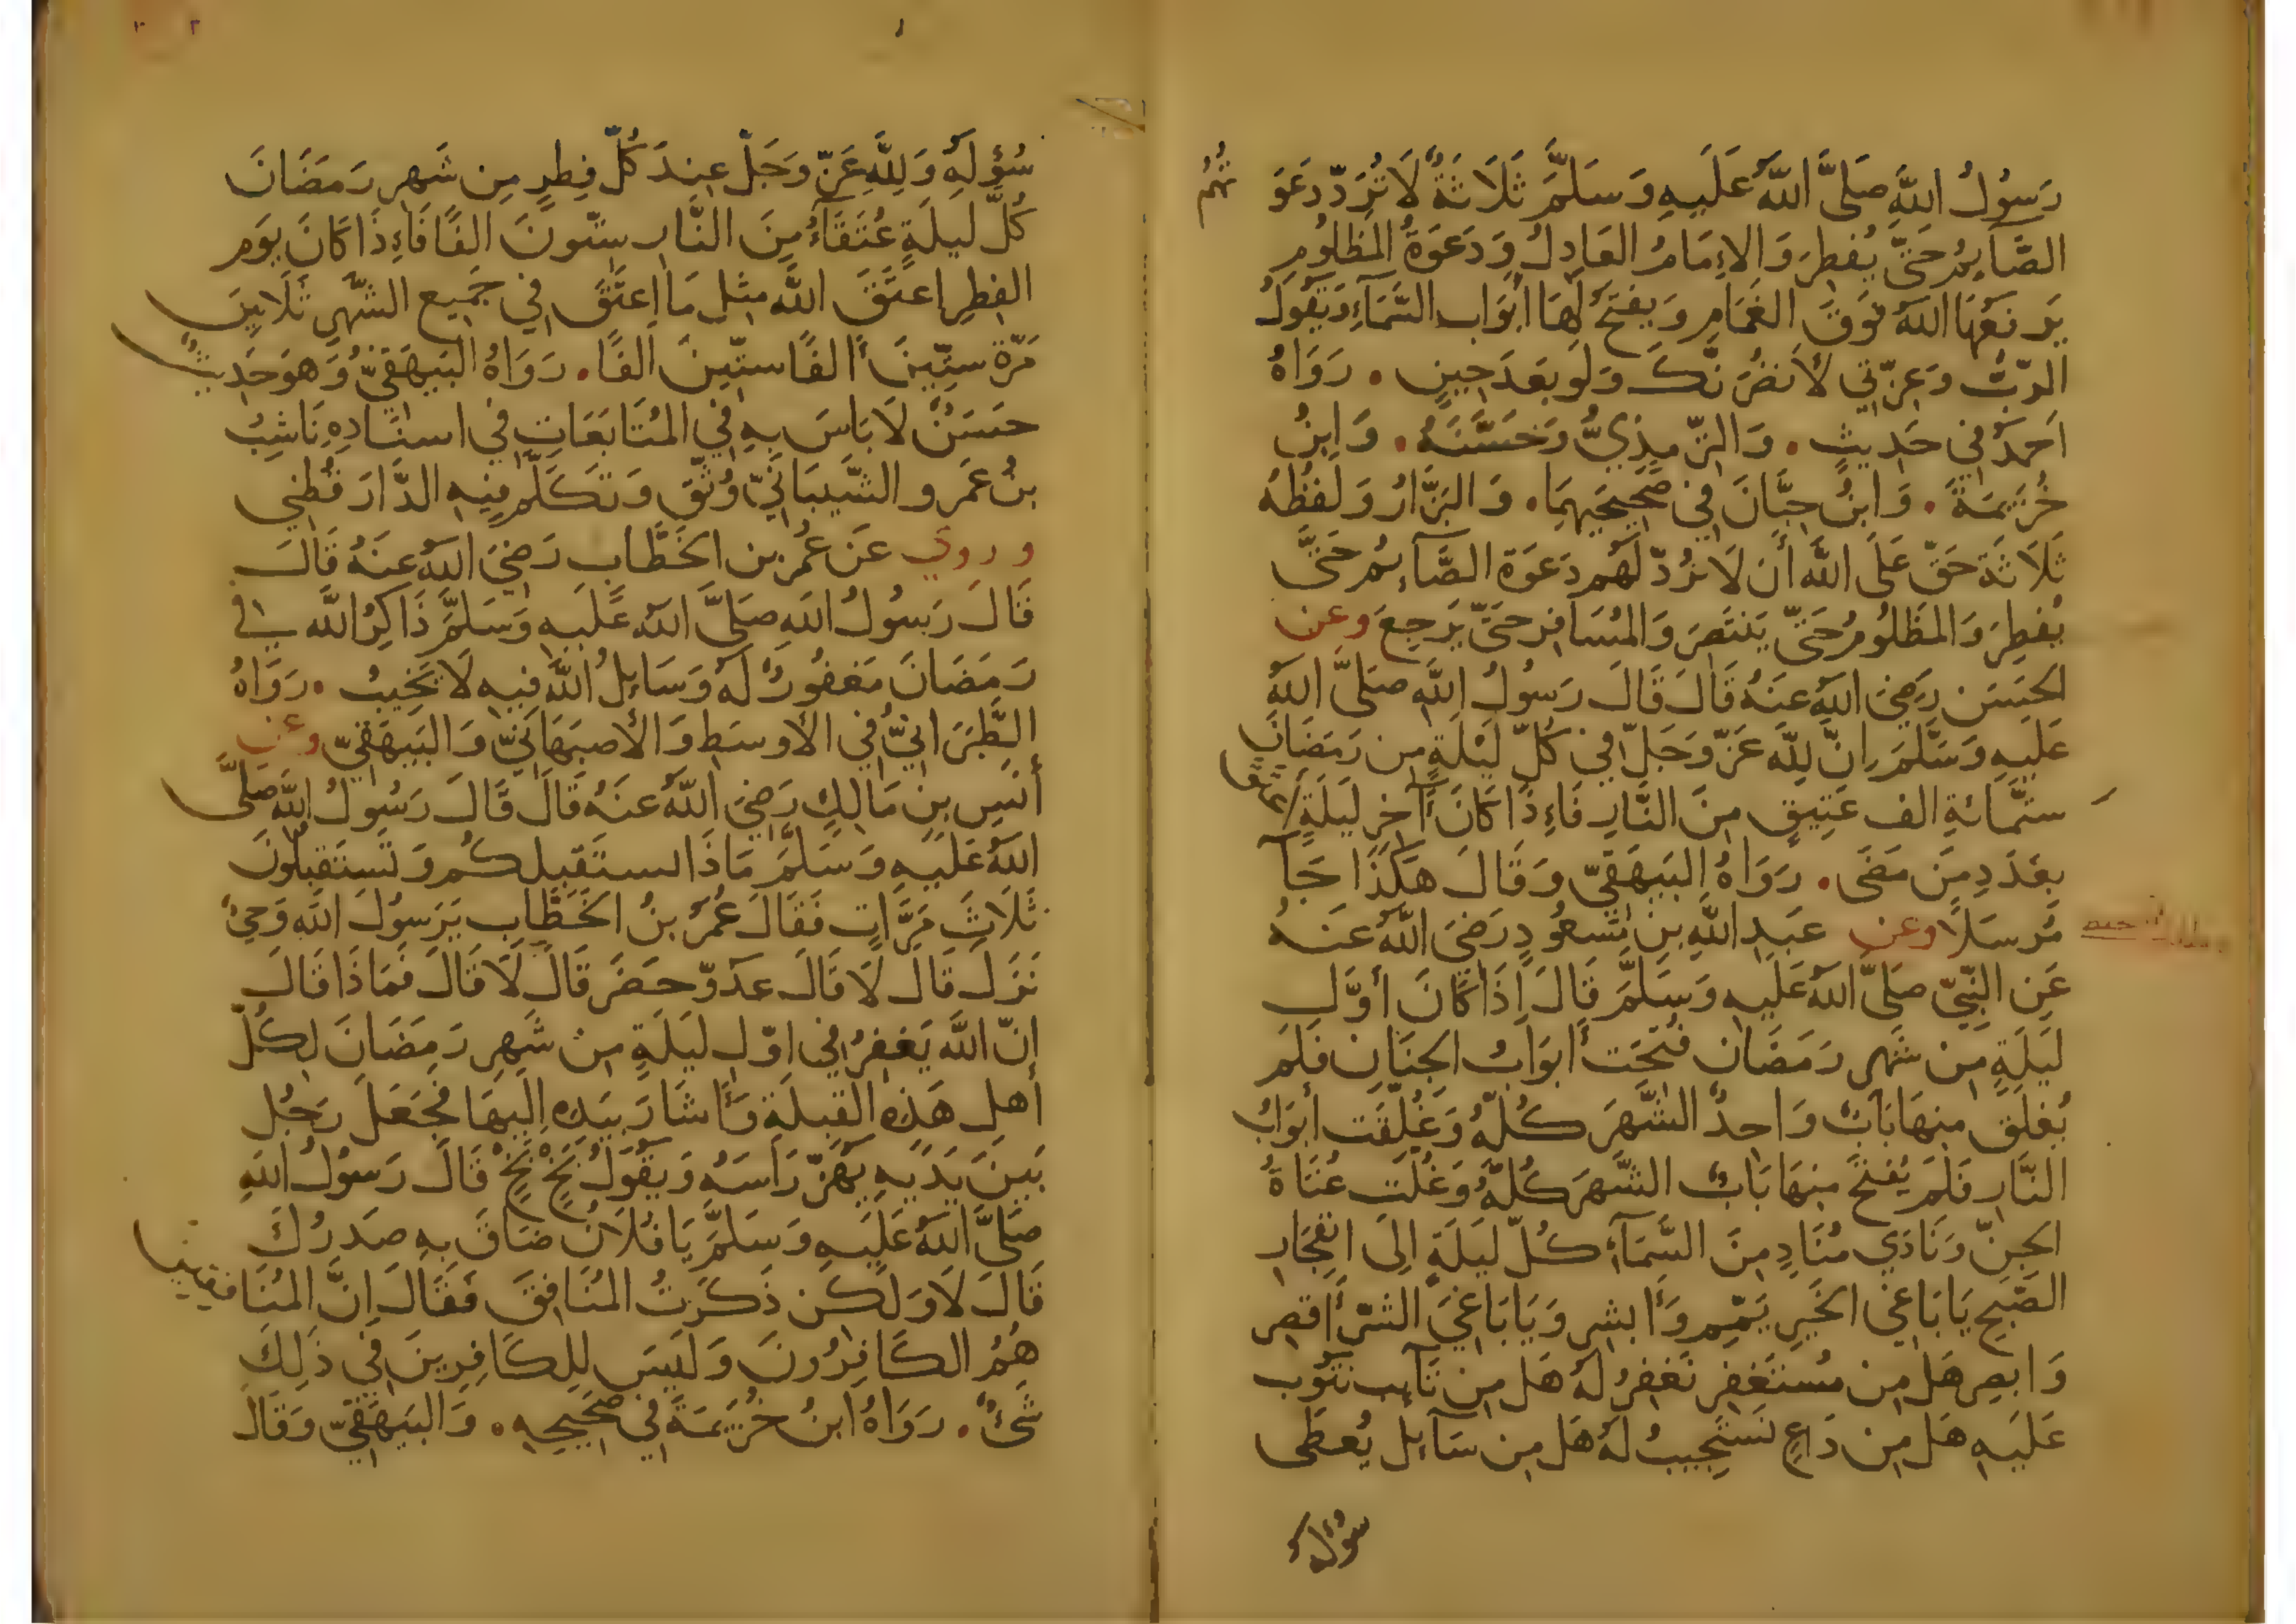 رَسُولُ اللَّهِ صَلَّى اللَّهُ عَلَيهِ وَسَلَّمَ ثَلَاثَةٌ لَا تُرَدّ دَعَوَ
تُهُم
الصَّآئِمُ حَتَّى يُفطِرَ وَالاِمَامُ العَادِلُ وَدَعَوَةُ المَظلُومِ
يَرفَعُهَا اللَّهُ فَوقَ الغَمَامِ وَيفتَحُ لَهَا اَبوَاب السَّمَآءِ وَيَقُولُ
الرّبُّ وَعِزَّتِي لأَنصُرَنَّكَ وَلَو بَعدَ حِينٍ . رَوَاهُ
اَحمَدُ في حَدِيثٍ . وَالتّرمِذِيُّ وَحَسَّنَهُ . وَابنُ
خُزَيمَةَ . وَابنُ حِبَّانَ فِي صَحِيحَيهِمَا . وَالبَزَّارُ وَلَفظُهُ
ثَلَاثَة حَقّ عَلَى اللَّه أَن لَا يَرُدّ لَهُم دَعَوَة الصَّآئِم حَتَّى
يُفطِرَ وَالمَظلُومُ حَتَّى يَنتَصِرَ وَالمُسَافِر حَتَّى يَرجِعَ وعن
الحَسَن رَضِيَ اللَّهُ عَنهُ قَالَ قَالَ رَسُولُ اللَّهِ صَلَّى اللَّهُ
عَلَيهِ وَسَلَّمَ اِنَّ لِلَّهِ عَزّ وَجَلّ فِي كُلّ لَيلَةٍ مِن رَمَضَانَ
ستّمَائةِ الف عَتِيقٍ مِنَ النَّارِ فَاِذَا كَانَ آخِر لَيلَةٍ
بِعَدَدِ مَن مَضَى . رَوَاهُ البَيهَقِيّ وَقَالَ هَكَذَا جَآ
مُرسَلًا وعن عَبدِ اللَّهِ بنِ مَسعُودٍ رَضِيَ اللَّهُ عَنهُ
عَنِ النَّبِيّ صَلَّى اللَّهُ عَلَيهِ وَسَلَّمَ قَالَ اِذَا كَانَ أوَّل
لَيلَةٍ مِن شَهرِ رَمَضَانَ فُتحَت أبوَابُ الجِنَانِ فَلَم
يُغلَق مِنهَا بَابٌ وَاحِدٌ الشَّهرَ كُلَّهُ وَغُلِّقَت أبوَابُ
النَّارِ فَلَم يُفتَح مِنهَا بَابٌ الشَّهرَ كُلَّهُ وَغُلَّت عُتَاةُ
الجِنّ وَنَادَي مُنَادٍ مِنَ السَّمَآءِ كُلّ لَيلَةٍ اِلَى انفِجَارِ
الصّبحِ يَا بَاغِيَ الخَيرِ يَمِّم وَأَبشِر وَيَا بَاغِيَ الشَّرّ أَقصِر
وَابصِر هَل مِن مُستَغفِرٍ نَغفِرُ لَهُ هَل مِن تَآئِب نَتُوب
عَلَيهِ هَل مِن دَاعٍ نَستَجِيبُ لَهُ هَل مِن سَآئِل يُعطَى
سُؤلَهُ
سُؤلَهُ وَلِلَّهِ عَزّ وَجَلّ عِندَ كُلّ فِطرٍ مِن شَهرِ رَمَضَانَ
كُلَّ لَيلَةٍ عُتَقَاءُ مِنَ النَّارِ سِتّونَ الفًا فَاِذَا كَانَ يَوم
الفِطرِ اعتَقَ اللَّه مِثل مَا اعتَقَ فِي جَمِيع الشَّهرِ ثَلَاثِينَ
مَرّة ستِّينَ ألفًا ستّينَ الفًا . رَوَاهُ البَيهَقيُّ وَهوَ حَدِيثٌ
حَسَنٌ لَا بَاسَ بِهِ فِي المُتَابَعَاتِ فِي اسنَادِهِ نَاشِبُ
بنُ عَمرو الشَّيبَانيّ وُثّق وَتَكَلَّم فِيهِ الدَّارَقُطنِي
وروي عَن عُمَرَ بن الخَطَّابِ رَضِيَ اللَّهُ عَنهُ قَالَ
قَالَ رَسُولُ اللَّهِ صَلَّى اللَّهُ عَلَيهِ وَسَلَّمَ ذَاكِرُ اللَّه في
رَمَضَانَ مَغفُورٌ لَهُ وَسَايلُ اللَّه فِيهِ لَا يَخِيبُ . رَوَاهُ
الطَّبَرَانيُّ فِي الأوسَطِ وَالأصبَهَانيّ وَالبَيهَقيّ وعن
أنَسِ بنِ مَالِكٍ رَضِيَ اللَّهُ عَنهُ قَالَ قَالَ رَسُولُ اللَّهِ صَلَّى
اللَّهُ عَلَيهِ وَسَلَّمَ مَاذَا استَقبلكُم وَتَستَقبِلُونَ
ثَلَاثَ مَرَّاتٍ فَقَالَ عُمَرُ بنُ الخَطَّابِ يَرَسُولَ اللَّهِ وَحيٌ
نَزَلَ قَالَ لَا قَالَ عَدُوّ حَضَرَ قَالَ لَا قَالَ فَمَاذَا قَالَ
إنّ اللَّهَ يَغفِرُ فِي اوّلِ لَيلَةٍ مِن شَهرِ رَمَضَانَ لِكُلّ
أهلِ هَذِهِ القِبلَةِ وَأَشَارَ بِيَدِهِ اِلَيهَا فَجَعَلَ رَجُل
بَينَ يَدَيهِ يَهُزّ رَاسَهُ وَيَقُولُ بَخٍ بَخٍ قَالَ رَسُولُ اللَّهِ
صَلَّى اللَّهُ عَلَيهِ وَسَلَّمَ يَا فُلَانُ ضَاقَ بِهِ صَدرُكَ
قَالَ لَا وَلَكِن ذَكَرتُ المُنَافِقَ فَقَالَ اِنَّ المُنَافِقِينَ
هُمُ الكَافِرُونَ وَلَيسَ لِلكَافِرِينَ فِي ذَلِكَ
شَئٌ . رَوَاهُ ابنُ خُزَيمَةَ فِي صَحِيحِهِ . وَالبَيهَقيّ وَقَالَ